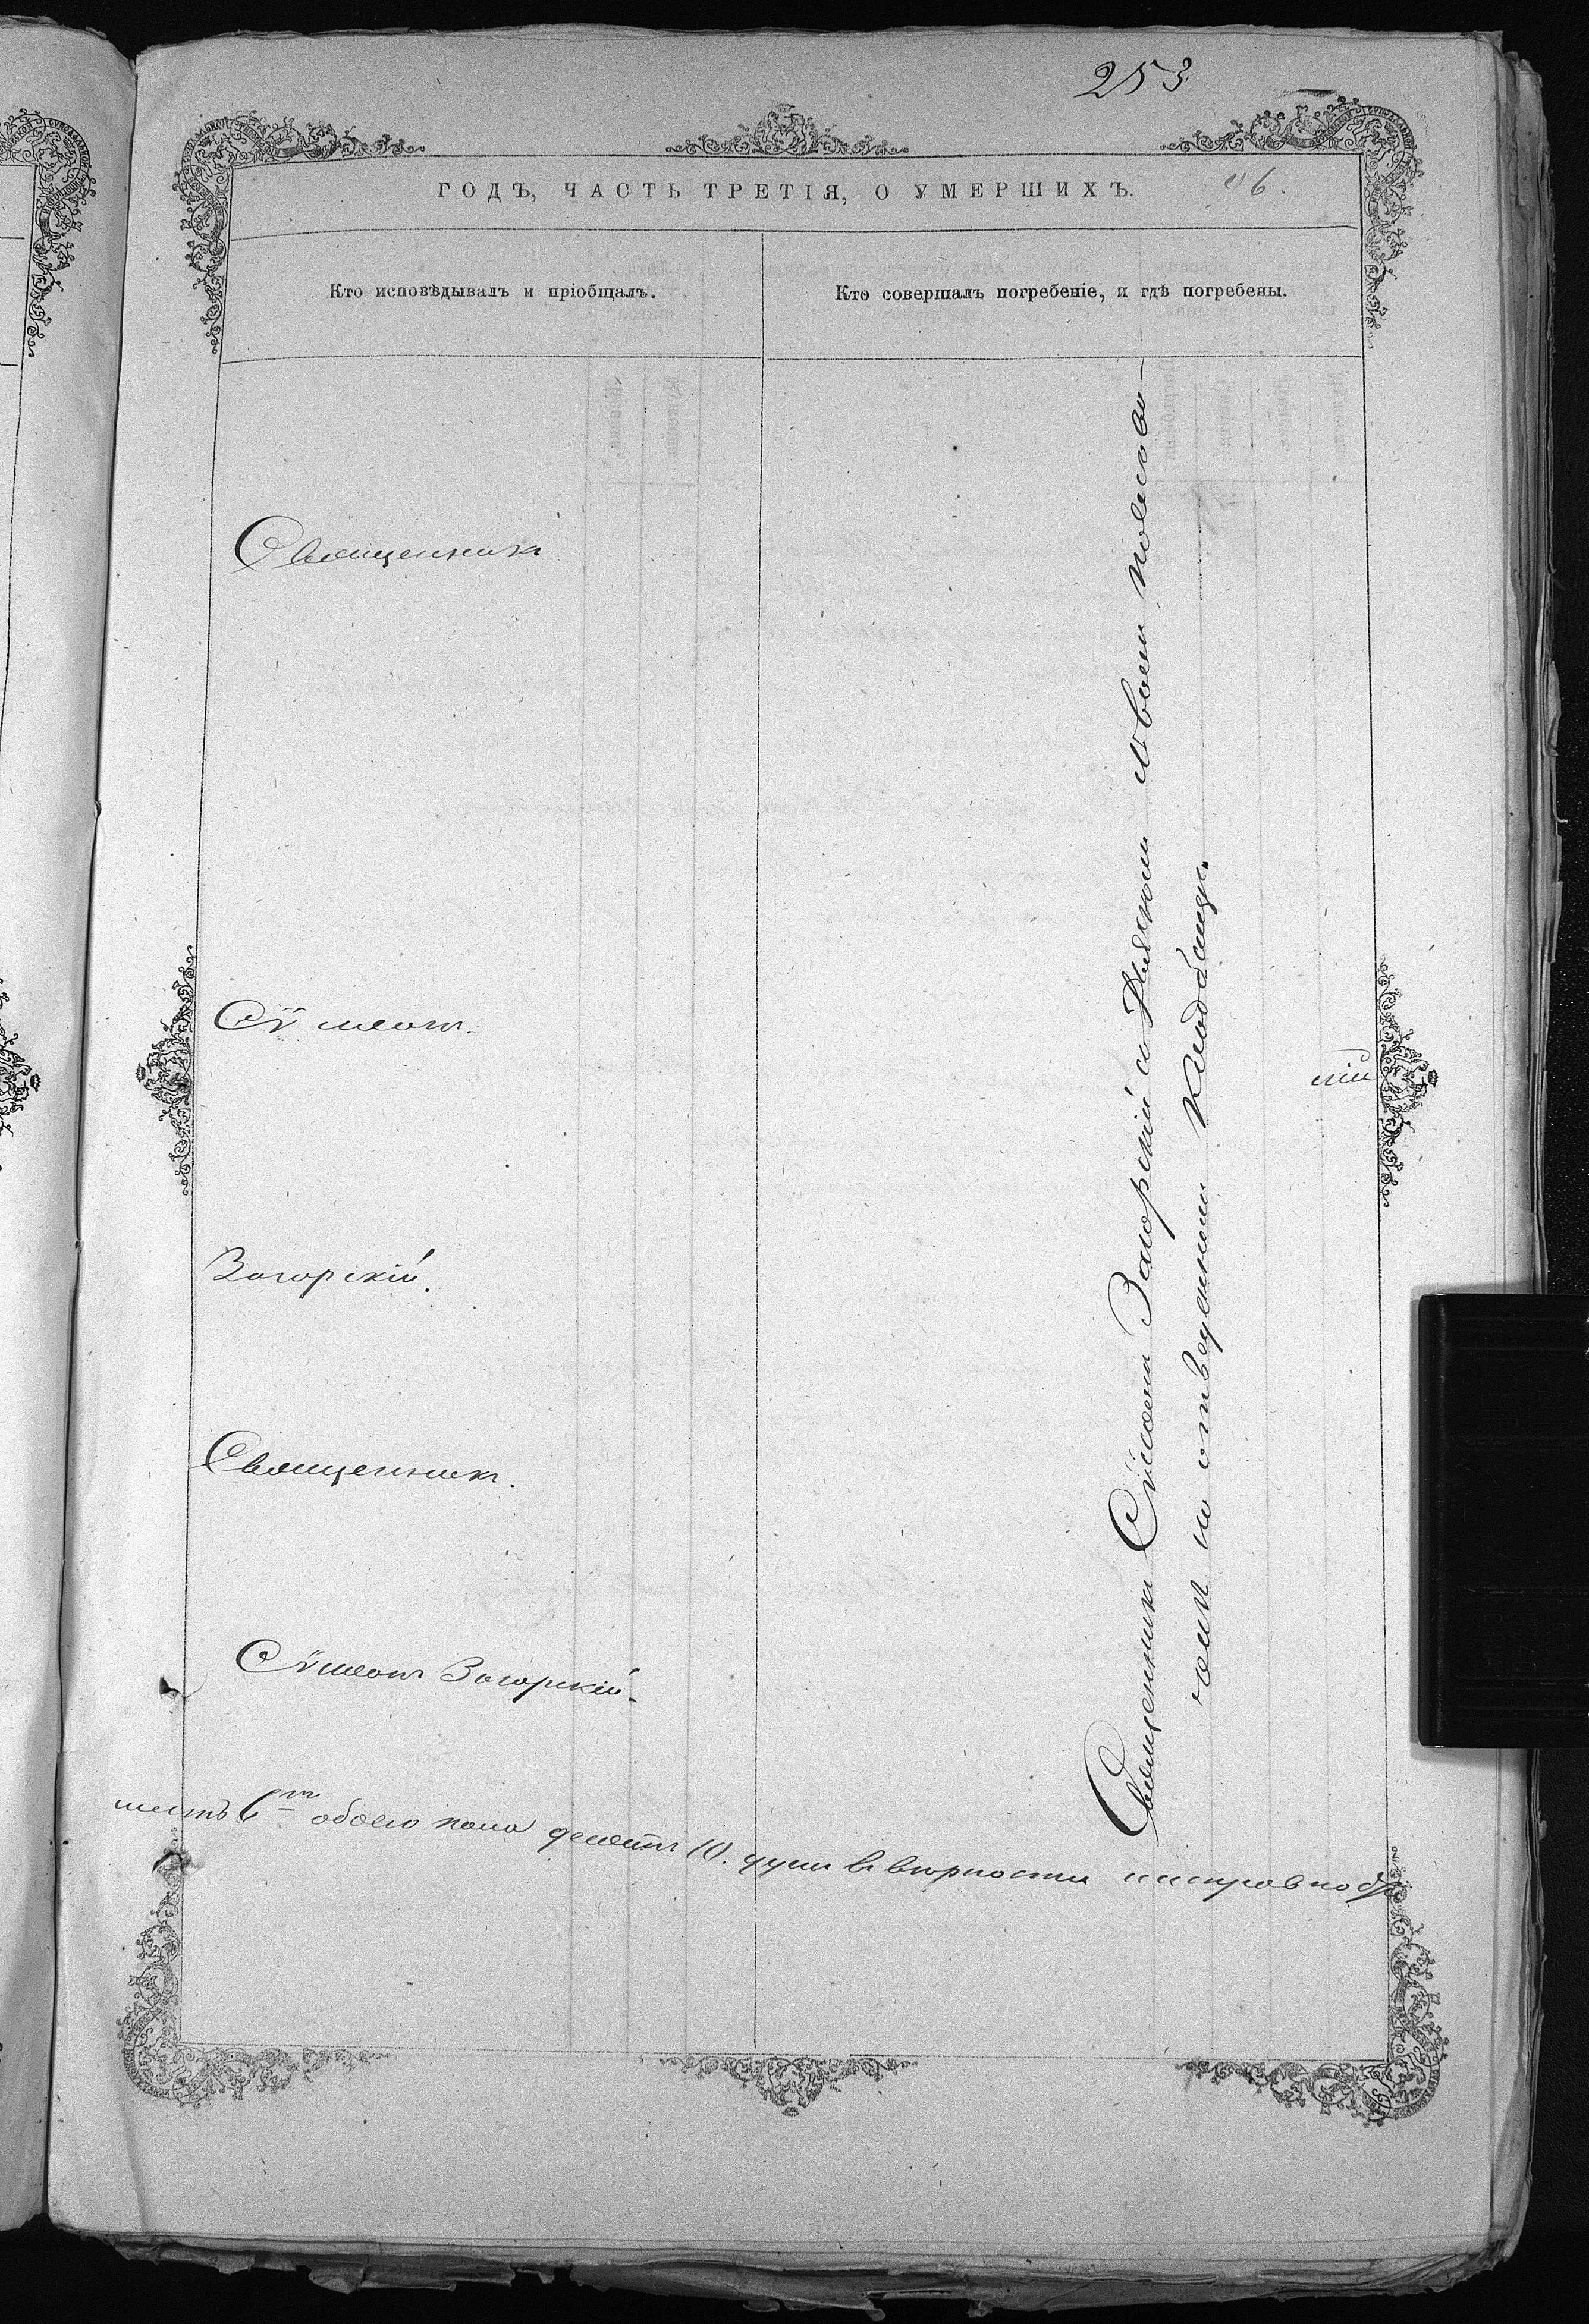 253
ГОДЪ, ЧАСТЬ ТРЕТІЯ, О УМЕРШИХЪ.
46.
Кто исповѣдывалъ и пріобщалъ.
Кто совершалъ погребеніе, и гдѣ погребены.
Священникъ
Сѵмеонъ.
Загорскій.
Священникъ.
Сѵмеонъ Загорскій.
Священникъ Сѵмеонъ Загорскій съ своимъ
на отведенномъ Кладбищѣ.
шесть 6ть обоего пола десять 10. душъ вѣрности